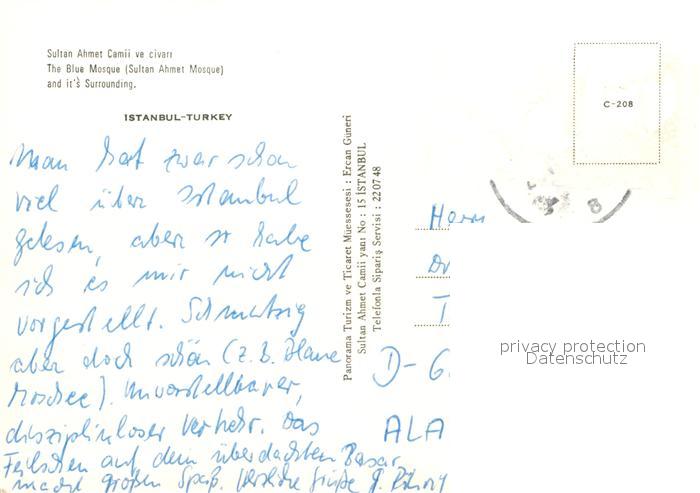 Sultan Ahmet Camii ve civarı
The Blue Mosque (Sultan Ahmet Mosque)
and it's Surrounding.
İSTANBUL-TURKEY
Man hat zwar schon
viel über Istanbul
gelesen, aber so habe
ich es mir nicht
vorgestellt. Schmutzig
aber doch schön (z. B. Blaue
Moschee). Unvorstellbarer,
disziplinloser Verkehr. Das
Feilschen auf dem überdachten Basar
macht großen Spaß. Grüße
Panorama Turizm ve Ticaret Muessesesi : Ercan Güneri
Sultan Ahmet Camii yanı No : 15 İSTANBUL
Telefonla Sipariş Servisi : 220748
C-208
8
Herrn
Dr
T
D-6
ALA
privacy protection
Datenschutz